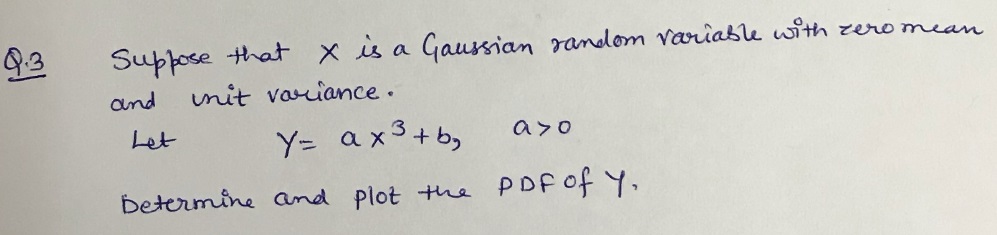 Q.3 Suppose that X is a Gaussian random variable with zero mean
and unit variance.
Let Y= ax³+b, a>0
Determine and plot the PDF of Y.